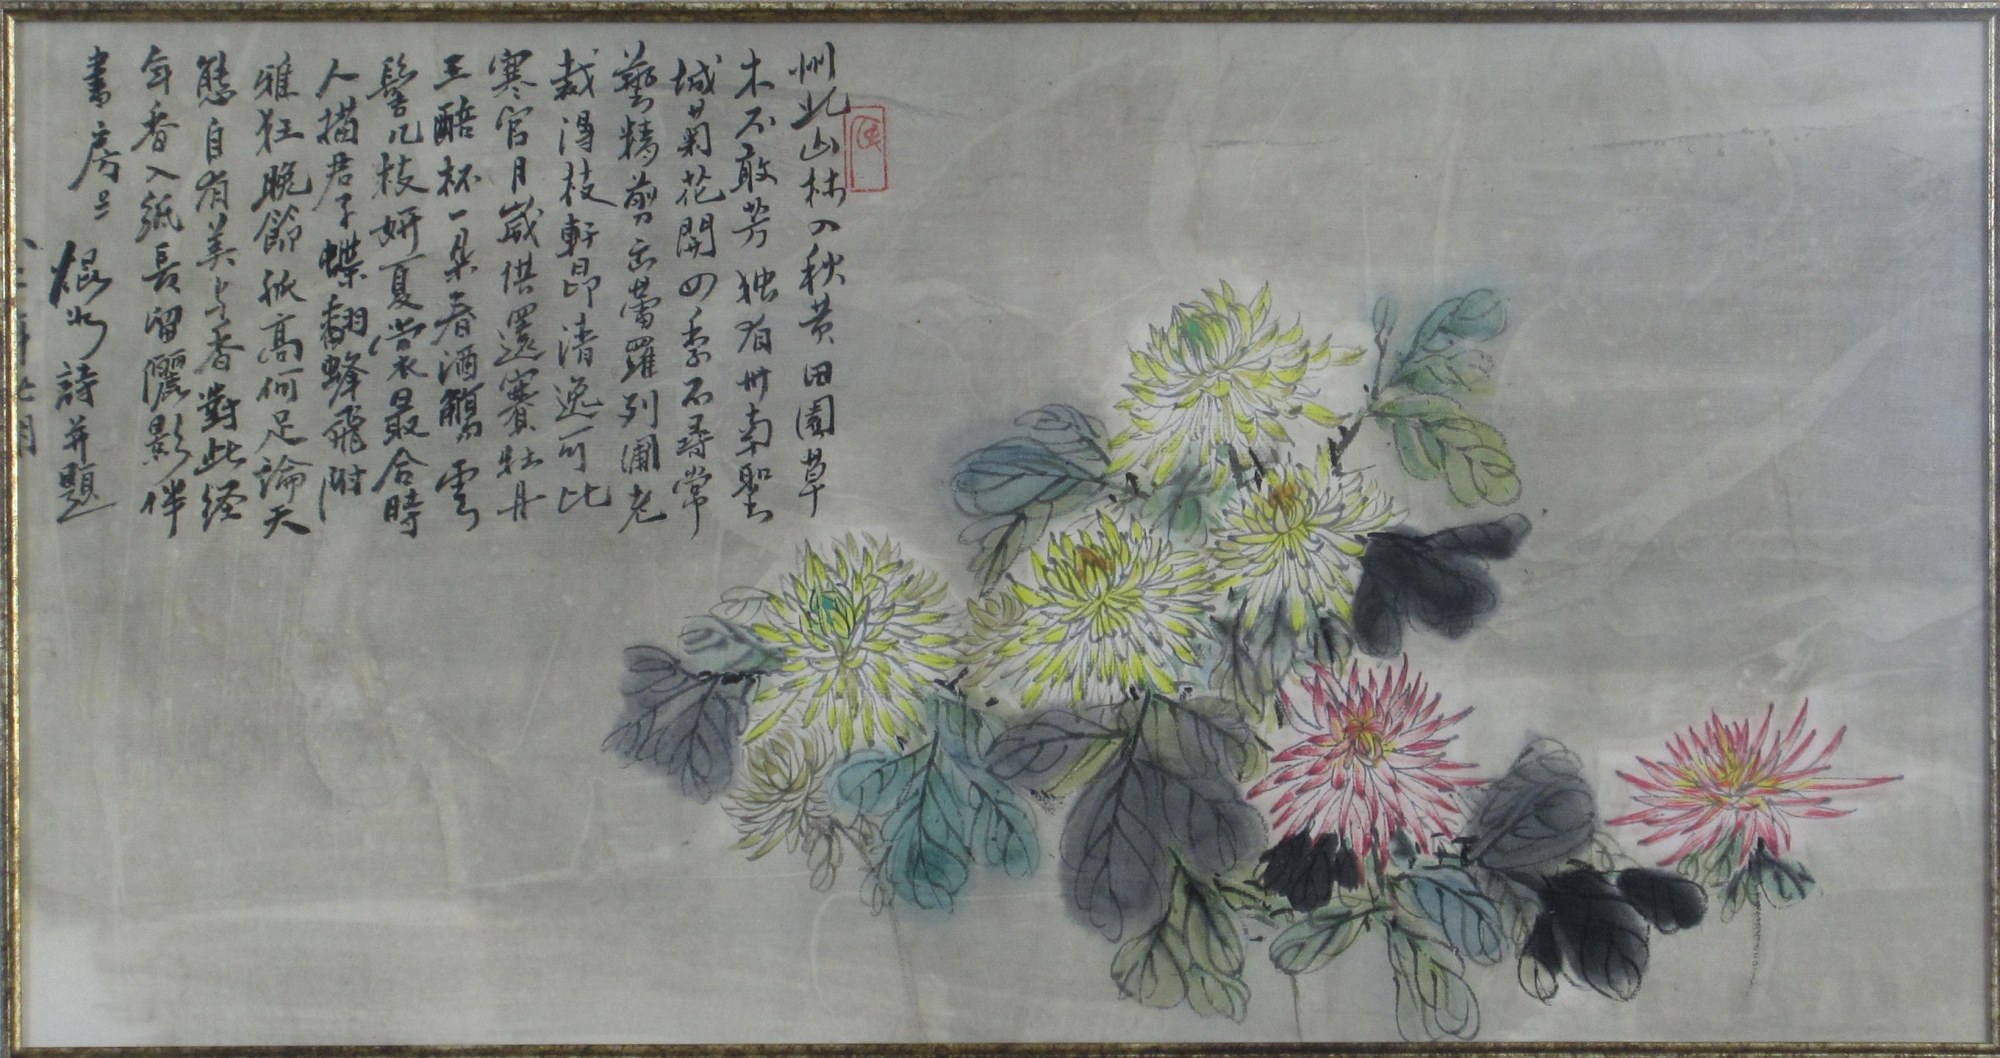 州北山林入秋黄田園草
木不敢芳独有卅南聖
城菊花開四季不尋常
藝精剪出蕾羅列圃老
裁得枝軒昂清逸可比
寒宫月歲供還賽牡丹
王醅杯一朵春酒觴雲
髻几枝妍夏裳最合時
人描君子蝶翻蜂飛附
雅狂晚節孤高何足論天
態自有美與香對此経
年香入紙長留儷影伴
書房
詩并題